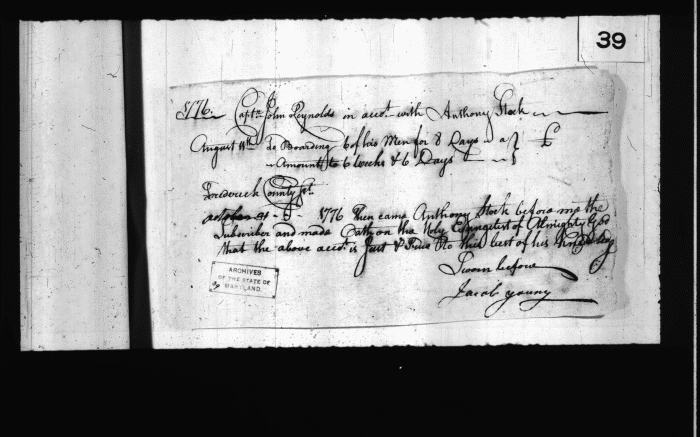 39
1776. Capt. John Reynolds in acct. with Anthony Stock
August 11th to Boarding 6 of his Men for 8 Days a
Amount to 6 Weeks & 6 Days
Frederick County Sct.
1776 Then came Anthony Stock before me the
Subscriber and made Oath on the Holy Evangelist of Almighty God
that the above acct. is Just & True to the best of his
Sworn before
Jacob Young
ARCHIVES
OF THE STATE OF
MARYLAND.